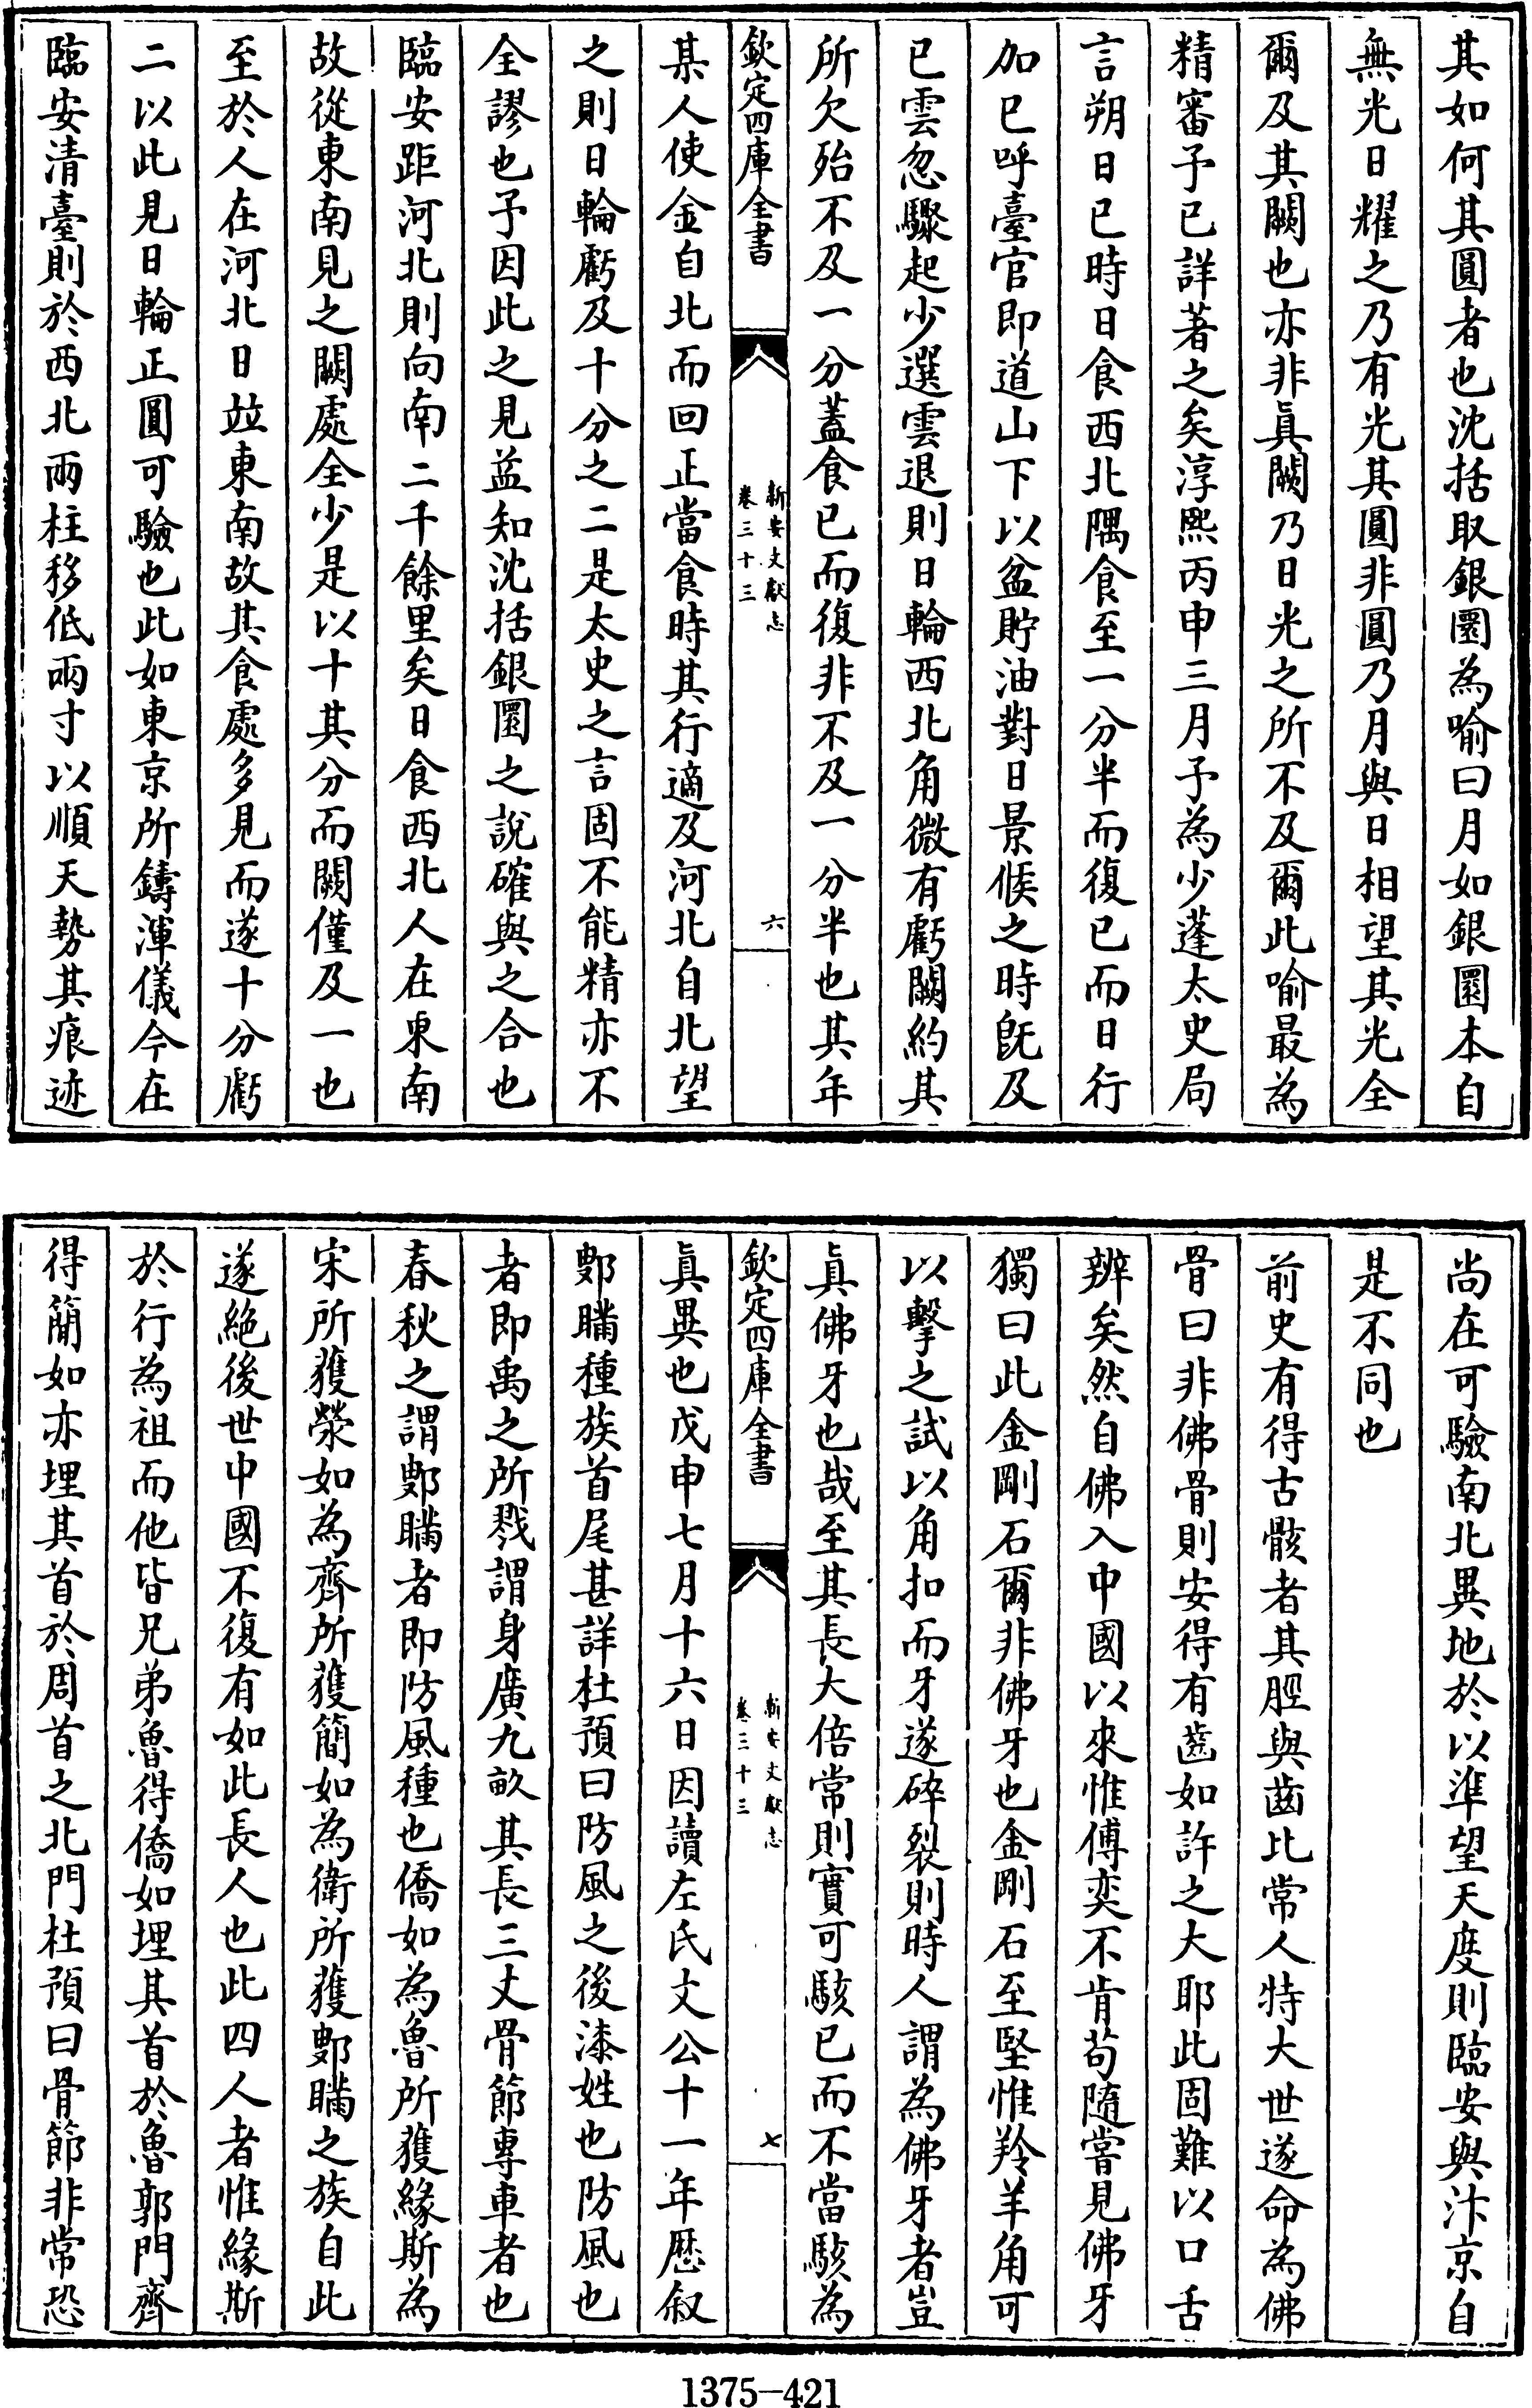 其如何其圓者也沈括取銀圜為喻曰月如銀圜本自
無光日耀之乃有光其圓非圓乃月與日相望其光全
爾及其闕也亦非真闕乃日光之所不及爾此喻最為
精審予已詳著之矣淳熙丙申三月予為少蓬太史局
言朔日已時日食西北隅食至一分半而復已而日行
加已呼臺官即道山下以盆貯油對日景候之時既及
已雲忽驟起少選雲退則日輪西北角微有虧闕約其
所欠殆不及一分蓋食已而復非不及一分半也其年
欽定四庫全書
新安文獻志
卷三十三
六
某人使金自北而回正當食時其行適及河北自北望
之則日輪虧及十分之二是太史之言固不能精亦不
全謬也予因此之見益知沈括銀圜之說確與之合也
臨安距河北則向南二千餘里矣日食西北人在東南
故從東南見之闕處全少是以十其分而闕僅及一也
至於人在河北日竝東南故其食處多見而遂十分虧
二以此見日輪正圓可驗也此如東京所鑄渾儀今在
臨安清臺則於西北兩柱移低兩寸以順天勢其痕迹
尚在可驗南北異地於以準望天度則臨安與汴京自
是不同也
前史有得古骸者其脛與齒比常人特大世遂命為佛
骨曰非佛骨則安得有齒如許之大耶此固難以口舌
辨矣然自佛入中國以來惟傅奕不肯苟隨嘗見佛牙
獨曰此金剛石爾非佛牙也金剛石至堅惟羚羊角可
以擊之試以角扣而牙遂碎裂則時人謂為佛牙者豈
真佛牙也哉至其長大倍常則實可駭已而不當駭為
欽定四庫全書
新安文獻志
卷三十三
七
真異也戊申七月十六日因讀左氏文公十一年歷叙
鄋瞞種族首尾甚詳杜預曰防風之後漆姓也防風也
者即禹之所戮謂身廣九畝其長三丈骨節專車者也
春秋之謂鄋瞞者即防風種也僑如為魯所獲緣斯為
宋所獲滎如為齊所獲簡如為衛所獲鄋瞞之族自此
遂絕後世中國不復有如此長人也此四人者惟緣斯
於行為祖而他皆兄弟魯得僑如埋其首於魯郭門齊
得簡如亦埋其首於周首之北門杜預曰骨節非常恐
1375-421